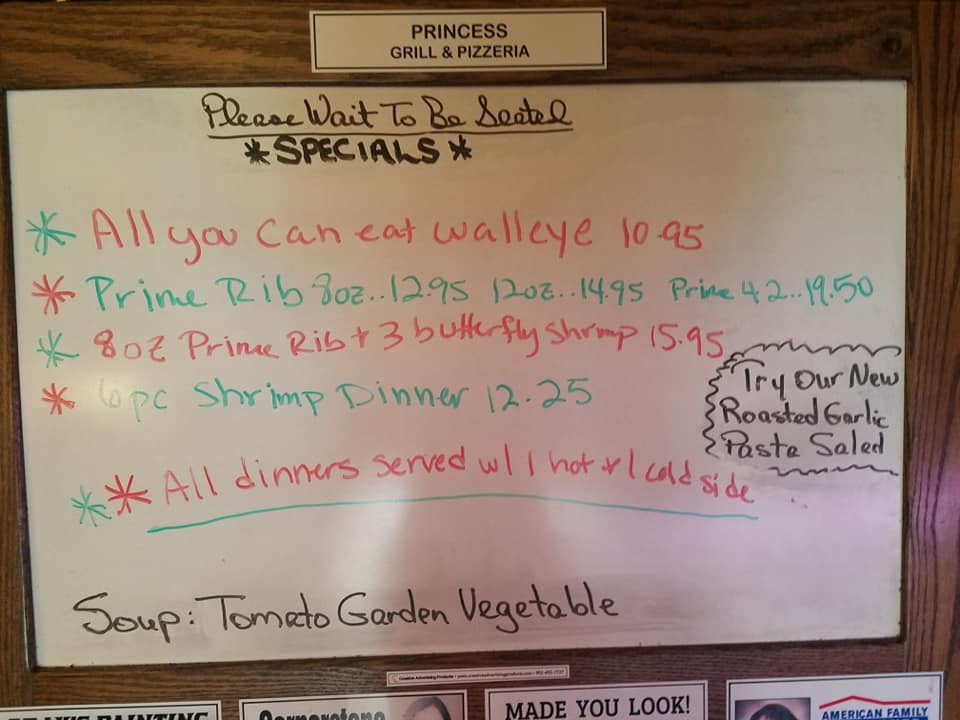 PRINCESS
GRILL & PIZZERIA
Please Wait To Be Seated
*SPECIALS*
* All you can eat walleye 10.95
* Prime Rib 8oz..12.95 12oz..14.95 Prime 42..19.50
* 8oz Prime Rib + 3 butterfly shrimp 15.95
* 6pc Shrimp Dinner 12.25
Try Our New
Roasted Garlic
Pasta Salad
** All dinners served w/ 1 hot & 1 cold side
Soup: Tomato Garden Vegetable
Creative Advertising Products
PAINTING
Cornerstone
MADE YOU LOOK!
AMERICAN FAMILY